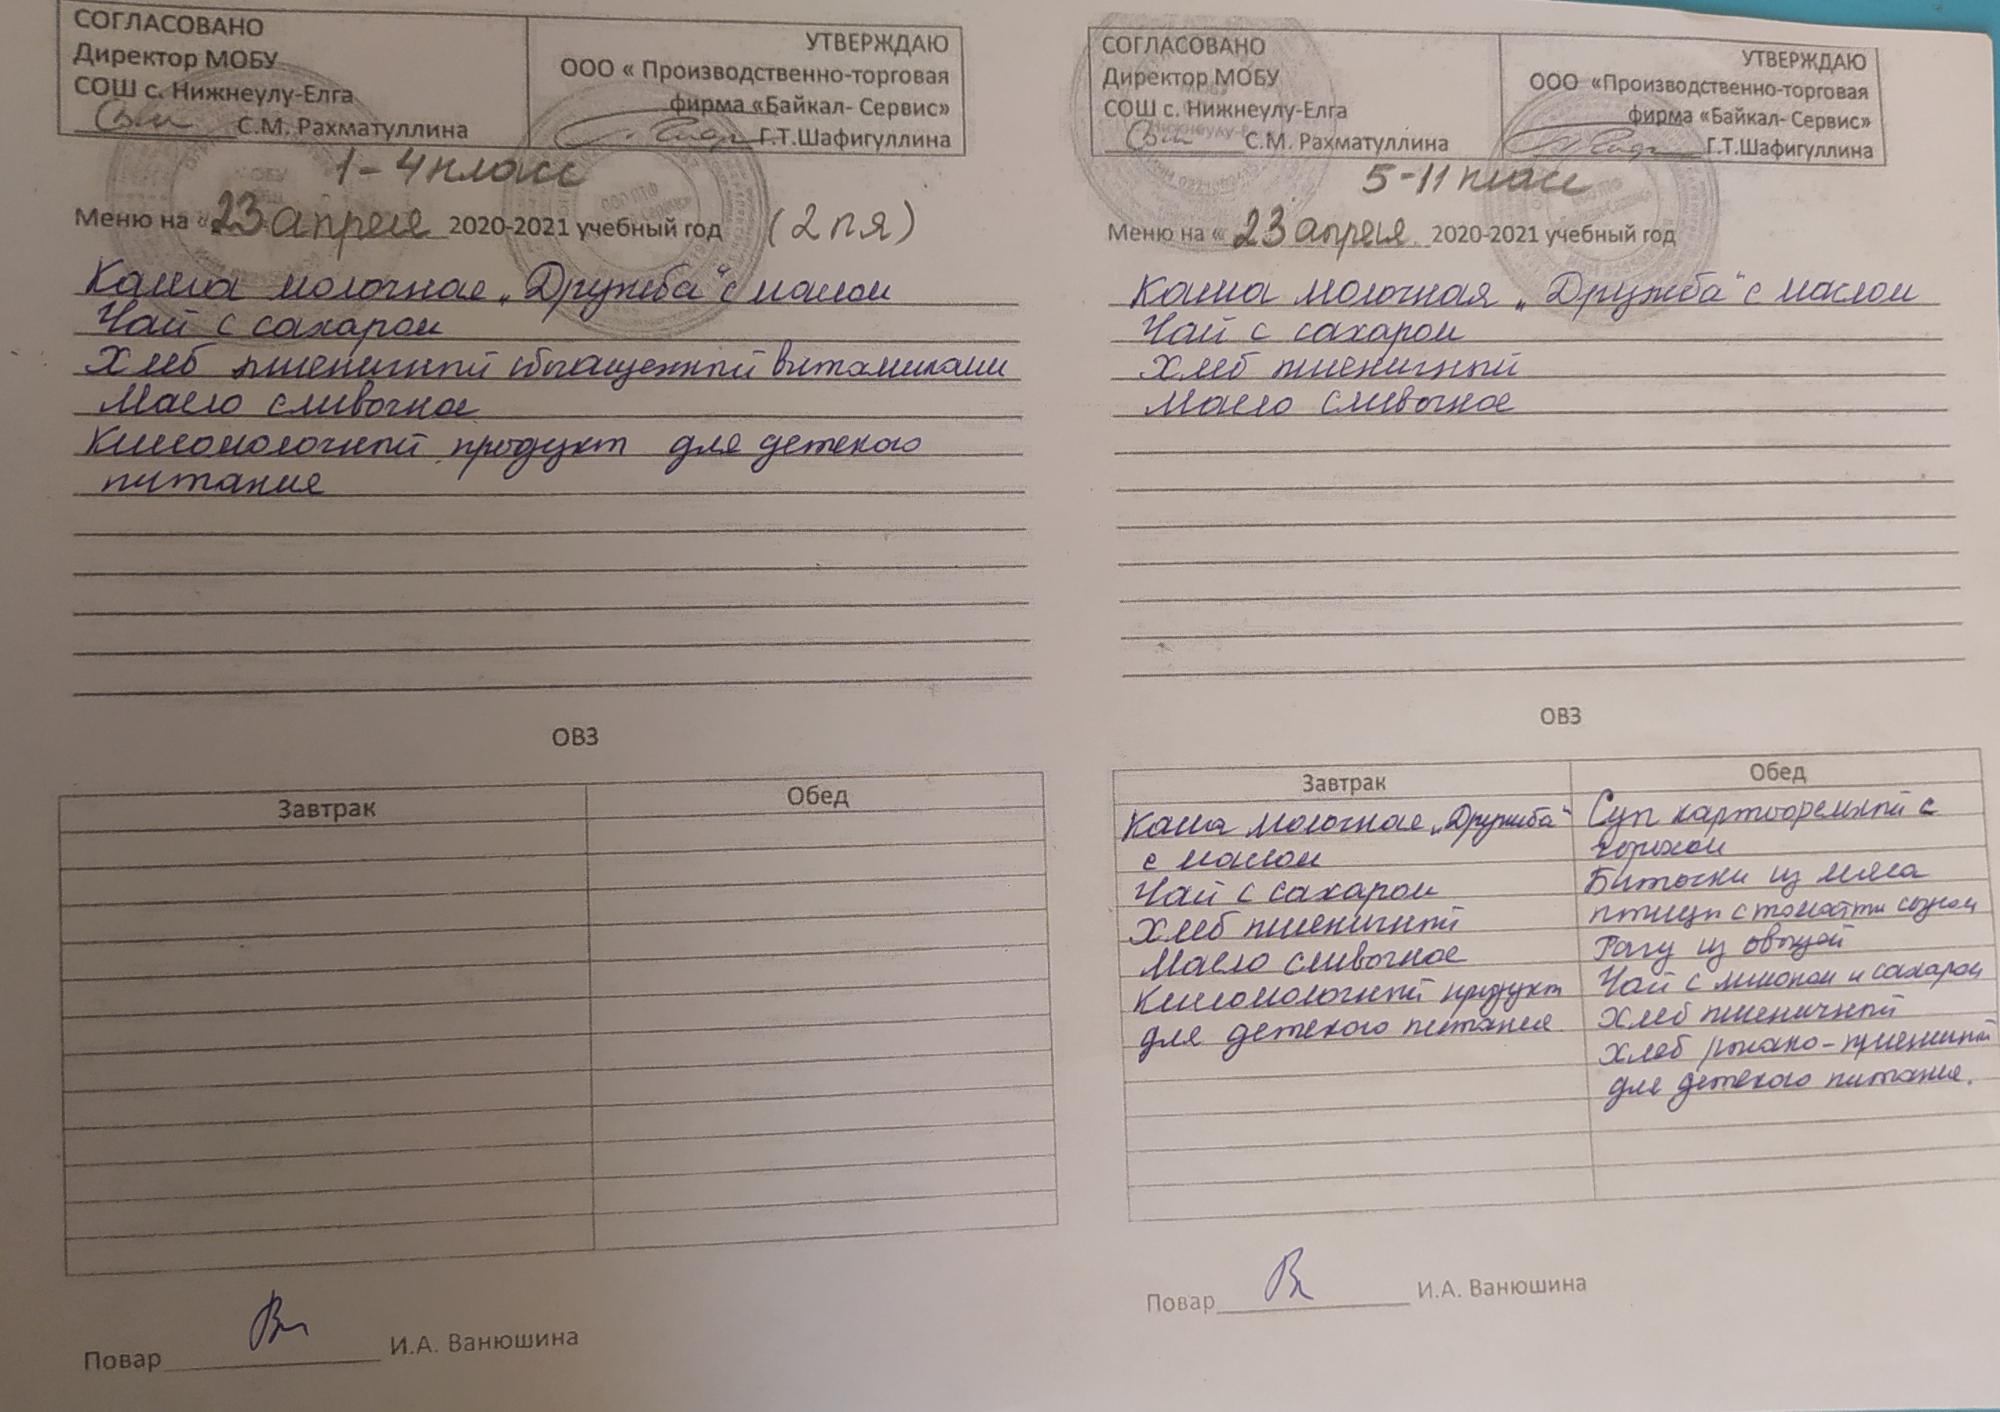 СОГЛАСОВАНО
Директор МОБУ
СОШ с. Нижнеулу-Елга
С.М. Рахматуллина
УТВЕРЖДАЮ
ООО « Производственно-торговая
фирма «Байкал- Сервис»
Г.Т.Шафигуллина
1-4 класс
Меню на « 23 апреля 2020-2021 учебный год (2 пя)
Каша молочная „Дружба“ с маслом
Чай с сахаром
Хлеб пшеничный обогащенный витаминами
Масло сливочное
Кисломолочный продукт для детского
питания
ОВЗ
Завтрак Обед
Повар И.А. Ванюшина
СОГЛАСОВАНО
Директор МОБУ
СОШ с. Нижнеулу-Елга
С.М. Рахматуллина
УТВЕРЖДАЮ
ООО «Производственно-торговая
фирма «Байкал- Сервис»
Г.Т.Шафигуллина
5-11 класс
Меню на « 23 апреля 2020-2021 учебный год
Каша молочная „Дружба“ с маслом
Чай с сахаром
Хлеб пшеничный
Масло сливочное
ОВЗ
Завтрак
Каша молочная „Дружба“
с маслом
Чай с сахаром
Хлеб пшеничный
Масло сливочное
Кисломолочный продукт
для детского питания
Обед
Суп картофельный с
горохом
Биточки из мяса
птицы с томатн соусом
Рагу из овощей
Чай с лимоном и сахаром
Хлеб пшеничный
Хлеб ржано-пшеничный
для детского питания.
Повар И.А. Ванюшина